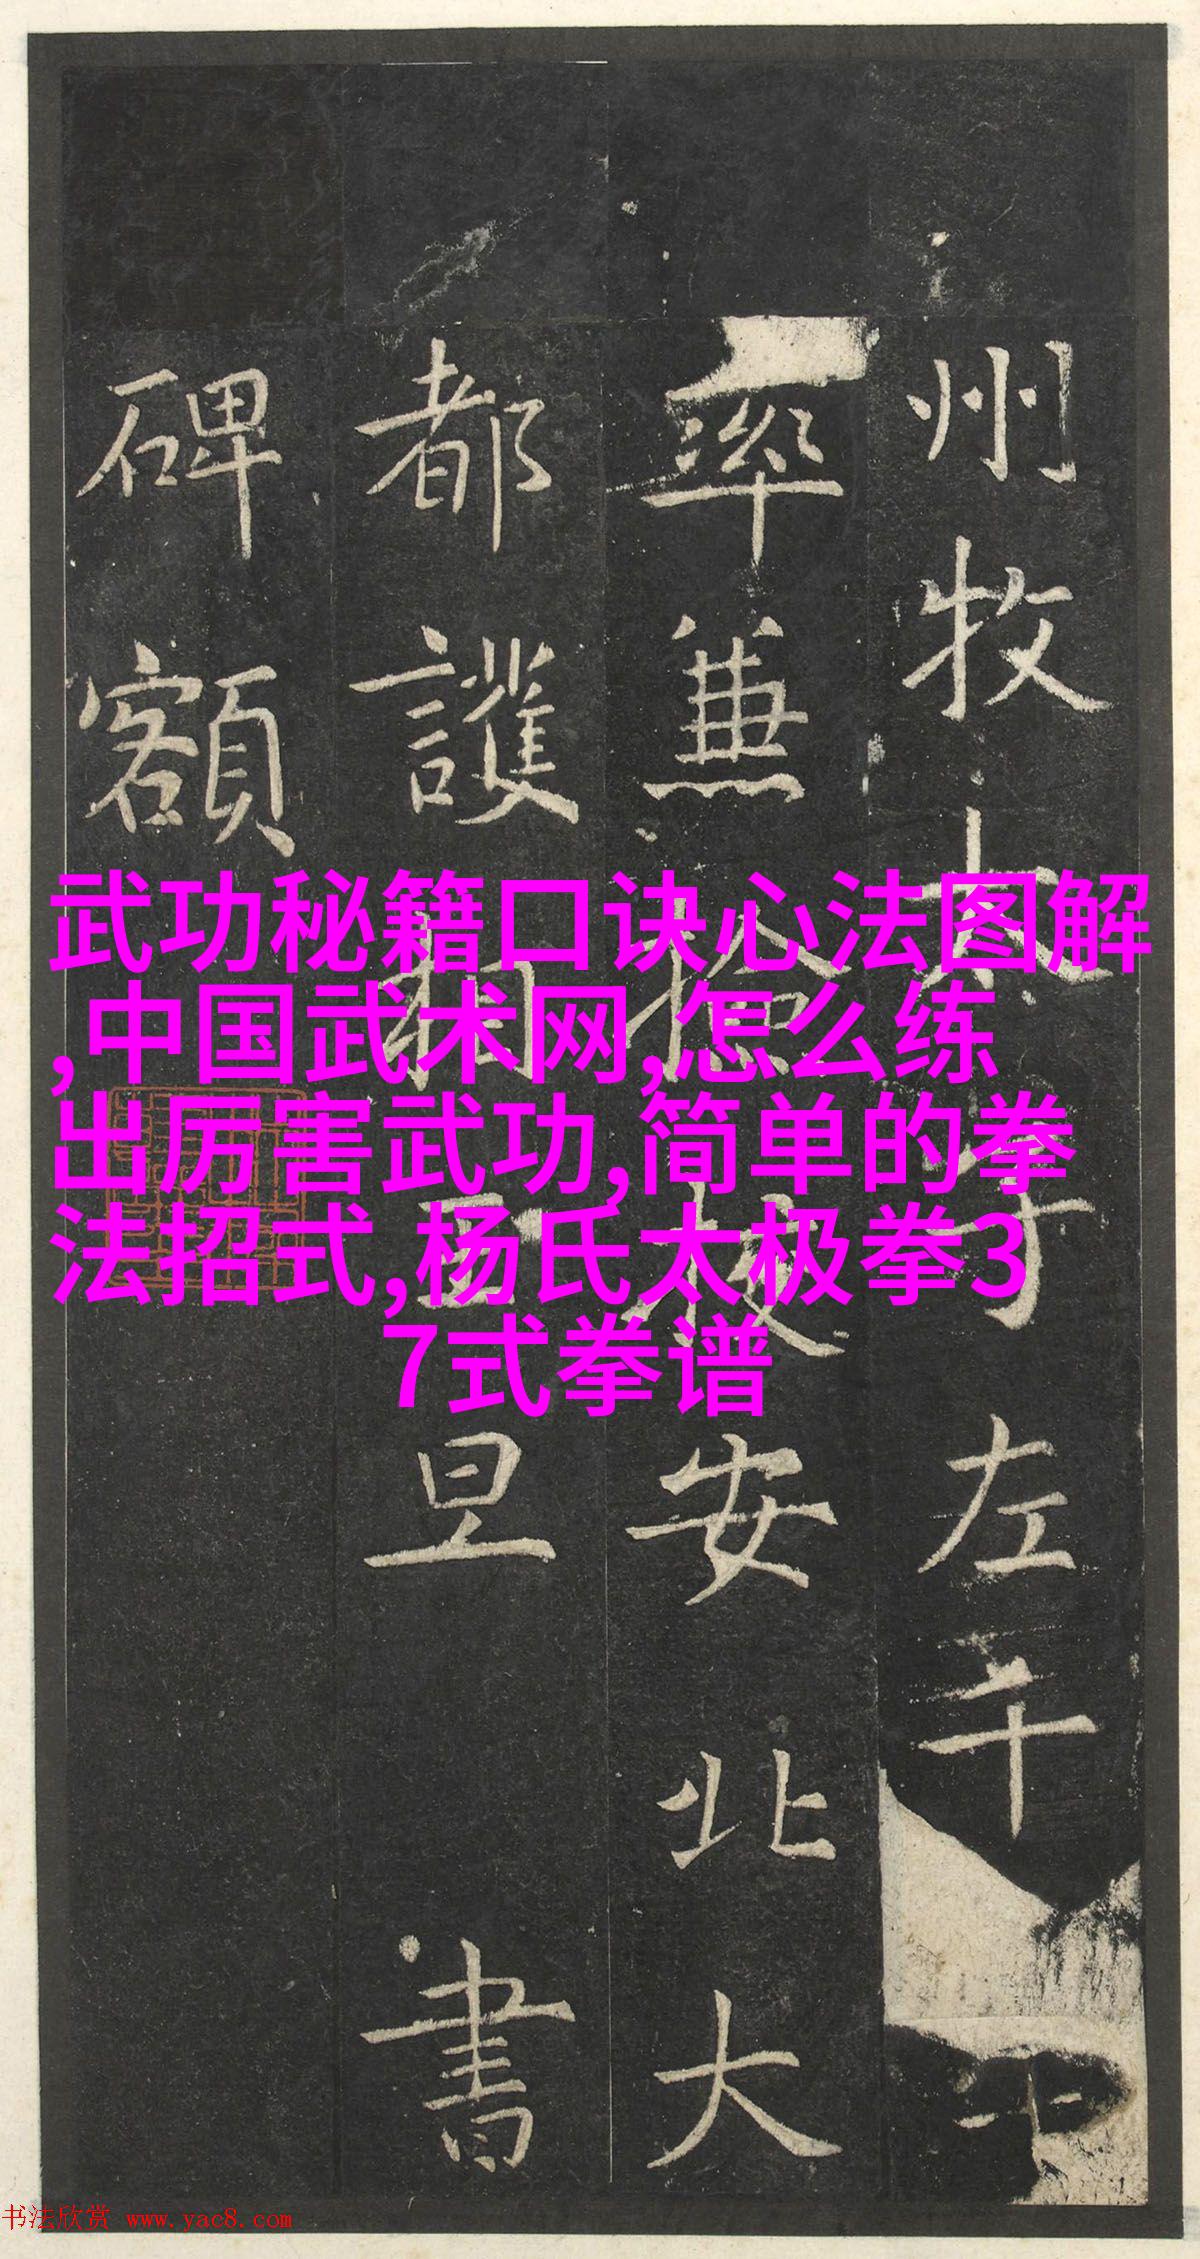 州牧太子左千
率兼撿挍安北大
都護相王旦書
碑額
武功秘籍口诀心法图解
,中国武术网,怎么练
出厉害武功,简单的拳
法招式,杨氏太极拳3
7式拳谱
书法欣赏 www.yac8.com